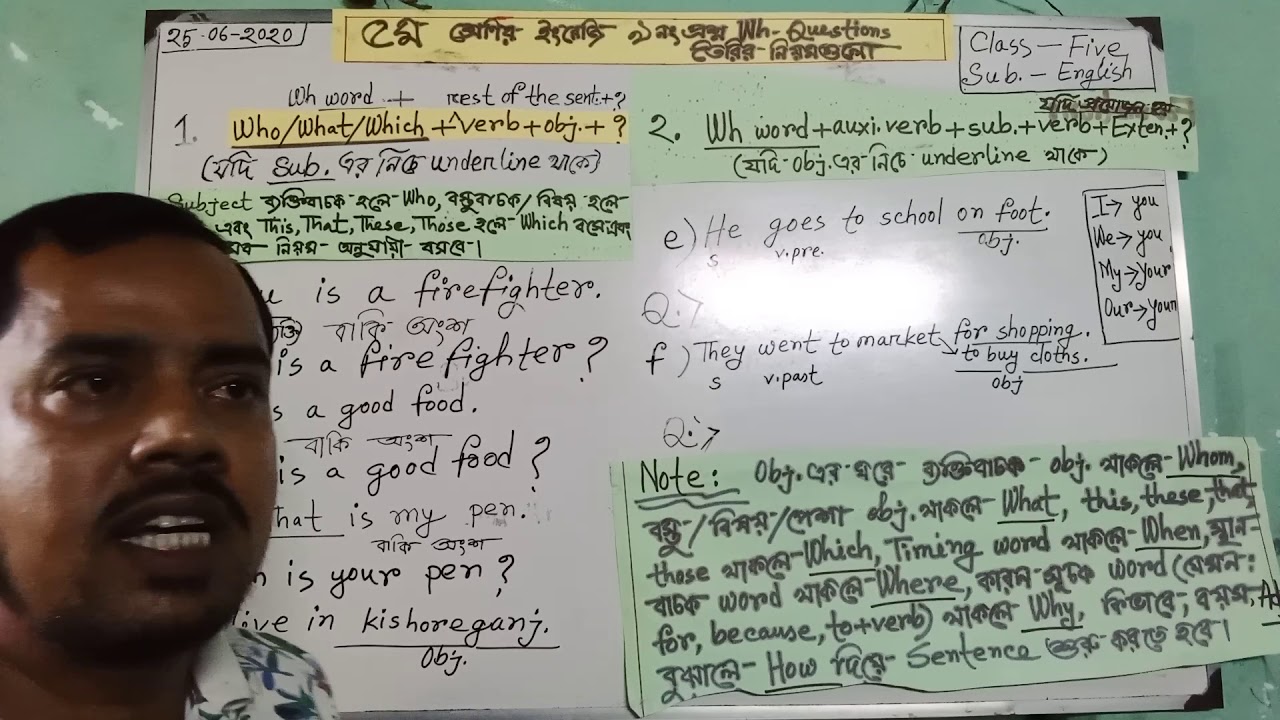 25-06-2020
৫ম শ্রেণির ইংরেজি ৯নং প্রশ্ন Wh-Questions
তৈরির নিয়মগুলো
Class – Five
Sub. – English
Wh word + rest of the sent.+?
1. Who/What/Which + verb + obj. + ?
(যদি Sub. এর নিচে underline থাকে)
Subject ব্যক্তিবাচক হলে Who, বস্তুবাচক/বিষয় হলে
এবং This, That, These, Those হলে Which বসে এবং
নিয়ম অনুযায়ী বসবে।
is a firefighter.
বাকি অংশ
is a fire fighter?
s a good food.
বাকি অংশ
is a good food?
hat is my pen.
বাকি অংশ
h is your pen?
live in kishoreganj.
Obj.
যদি প্রয়োজন হয়
2. Wh word + auxi. verb + sub. + verb + Exten. + ?
(যদি Obj. এর নিচে underline থাকে)
e) He goes to school on foot.
S v.pre. obj.
Q:>
f) They went to market for shopping.
to buy cloths.
S v.past obj
Q:>
I → you
We → you
My → your
Our → your
Note: Obj. এর ঘরে ব্যক্তিবাচক obj. থাকলে Whom,
বস্তু/বিষয়/পেশা obj. থাকলে What, this, these, that,
those থাকলে Which, Timing word থাকলে When, স্থান-
বাচক word থাকলে Where, কারন সূচক word (যেমন:
for, because, to+verb) থাকলে Why, কিভাবে, বয়স, Ad
বুঝালে How দিয়ে Sentence শুরু করতে হবে।